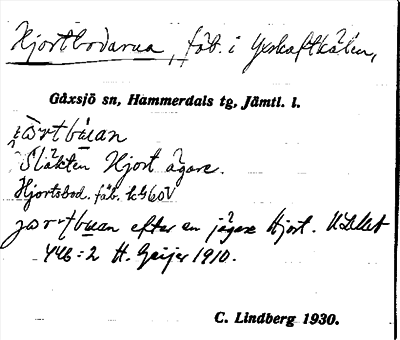 Hjortbodarna, fäb. i Yxskaftkälen,
Gåxsjö sn, Hammerdals tg, Jämtl. l.
jo̱rtbúan
Släkten Hjort ägare.
Hjortsbod. fäb. k G 60V
jo̱rtbu̱an efter en jägare Hjort.
446:2 H. Geijer 1910.
C. Lindberg 1930.